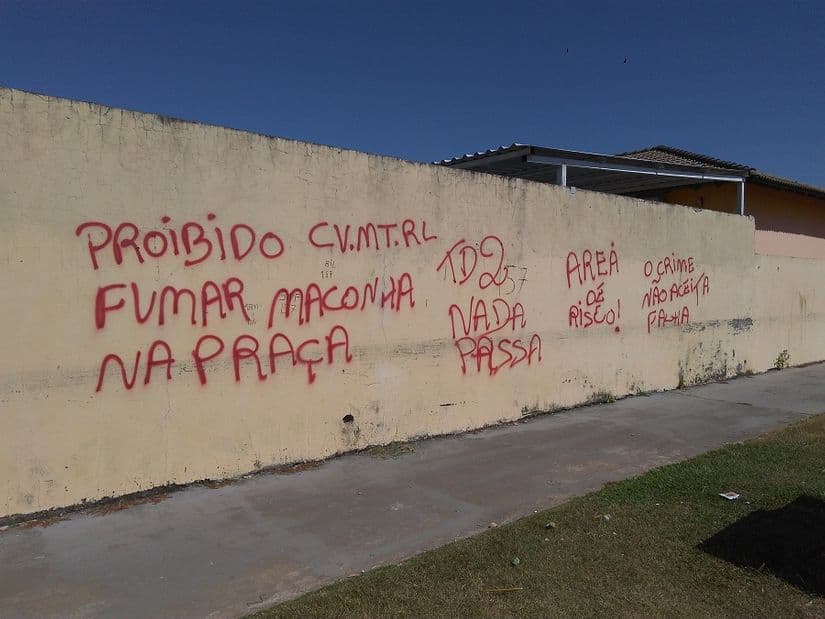 PROIBIDO
FUMAR MACONHA
NA PRAÇA
CV.MT.RL
TD2
NADA
PASSA
AREA
DE
RISCO!
O CRIME
NÃO ACEITA
FALHA